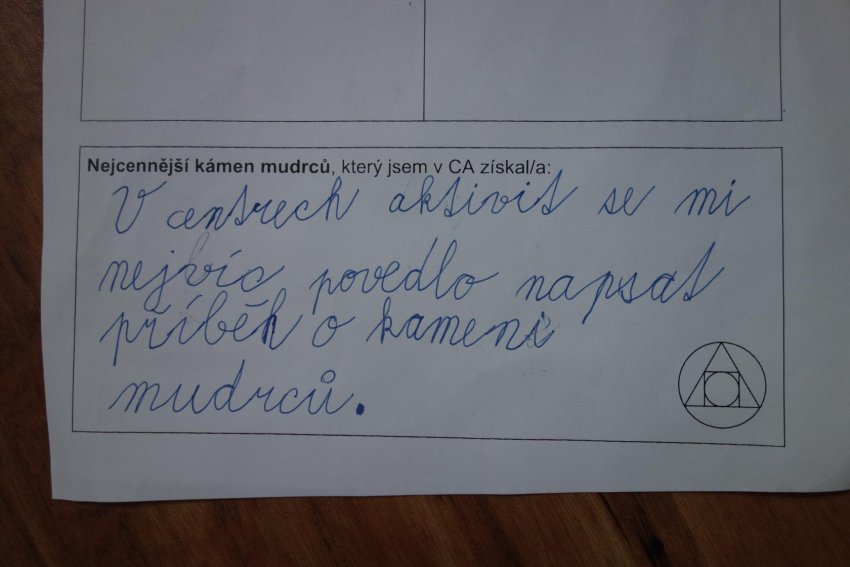 Nejcennější kámen mudrců, který jsem v CA získal/a:
V centrech aktivit se mi
nejvíc povedlo napsat
příběh o kameni
mudrců.